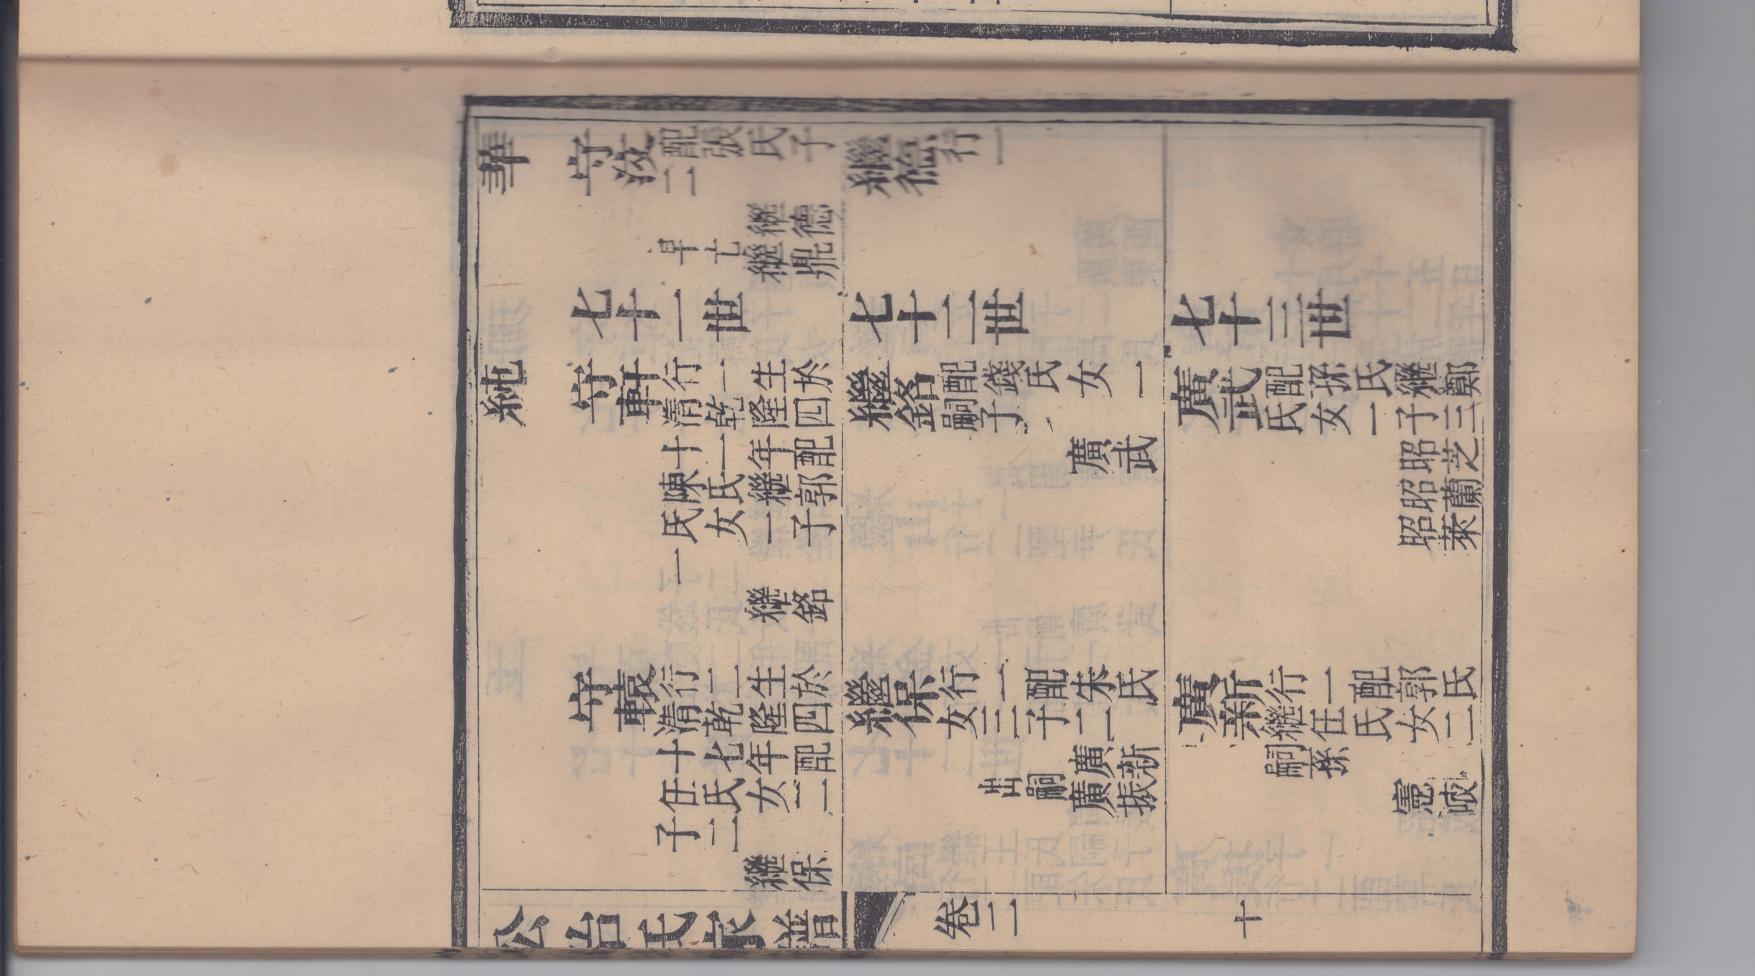 華
守浚 二 配張氏子
繼德
繼鼎早亡
繼德 行一
七十一世
七十二世
七十三世
純
守軒 行一生於
清乾隆四
十一年配
陳氏繼郭
氏女一子
一
繼銘
繼銘 配錢氏女一
嗣子
廣武
廣武 配孫氏繼鄭
氏女一子三
昭芝
昭蘭
昭萊
守轅 行二生於
清乾隆四
十七年配
任氏女二
子二
繼保
繼保 行二配朱氏
女三子二
廣新
廣振出嗣
廣新 行一配郭氏
繼任氏女二
嗣孫
憲岐
公冶氏家譜
卷二
十